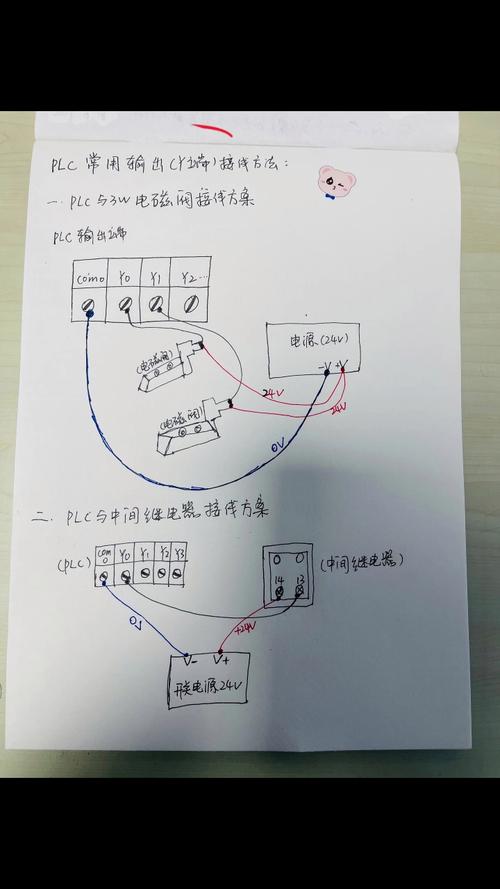 PLC 常用输出(Y端)接线方法:
一. PLC与3W电磁阀接线方案
PLC 输出端
Com0 Y0 Y1 Y2...
电源(24V)
-V +V
(电磁阀)
24V
24V
(电磁阀)
0V
二. PLC与中间继电器接线方案
(PLC) Com0 Y0 Y1 Y2 Y3
(中间继电器)
14 13
0V
+24V
V- V+
开关电源24V